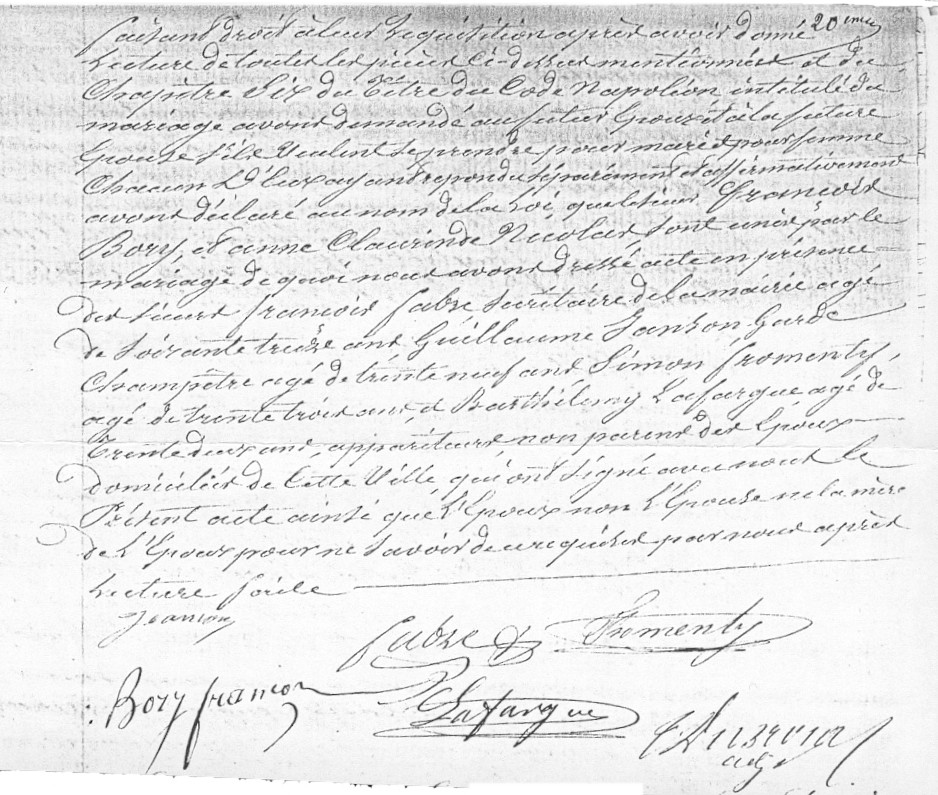 faisant droit à leur réquisition après avoir donné 20ème
Lecture de toutes les pièces ci-dessus mentionnées et du
Chapitre Six du titre du Code Napoléon intitulé du
mariage avons demandé au futur Epoux et à la future
Epouse s'ils veulent se prendre pour mari et pour femme
Chacun d'eux ayant répondu séparément et affirmativement
avons déclaré au nom de la Loi que le sieur François
Bory, et anne Claurinde Nicolas sont unis par le
mariage de quoi nous avons dressé acte en présence
des sieurs françois fabre secrétaire de la mairie agé
de soixante treize ans Guillaume Janson Garde
Champêtre agé de trente neuf ans Simon fromenty,
agé de trente trois ans, et Barthélemy Lafargue agé de
trente deux ans, appariteurs, non parens des Epoux
domiciliés de Cette Ville, qui ont signé avec nous le
Présent acte ainsi que l'Epoux non l'Epouse ni la mère
de l'Epoux pour ne savoir de ce requises par nous après
Lecture faite
Jeanson
fabre fromenty
Bory françois Lafargue
adj.